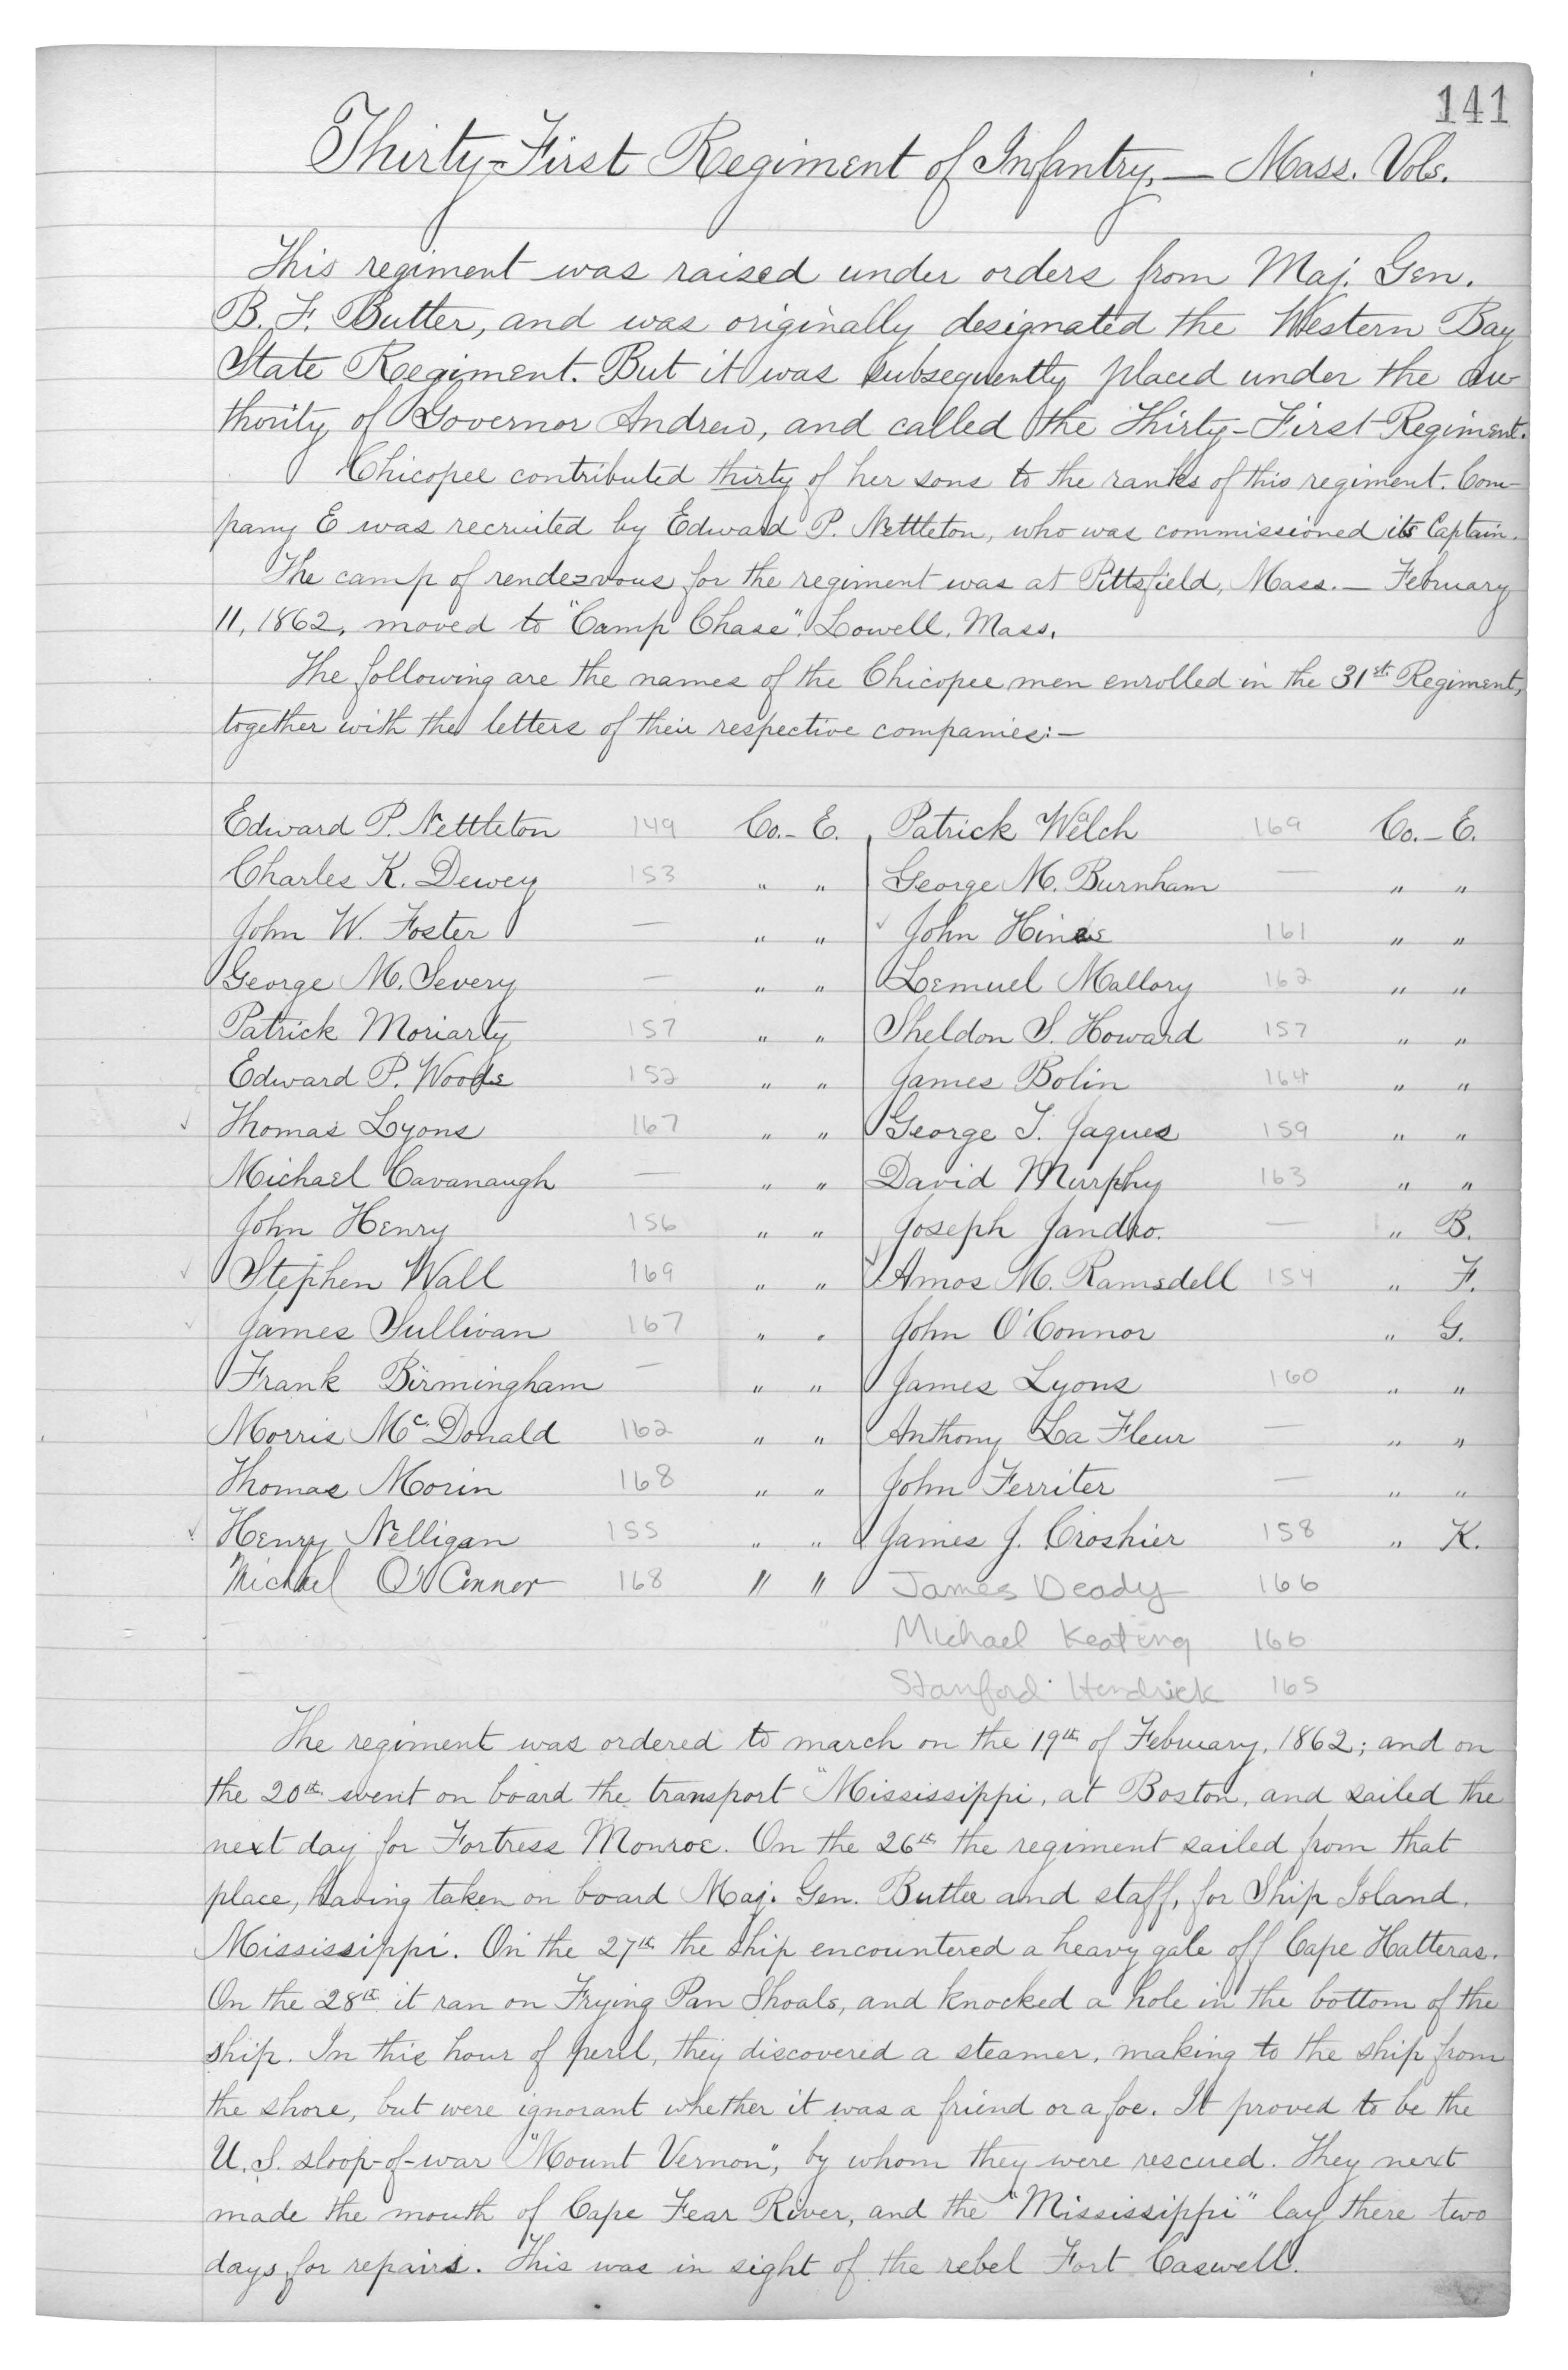 141
Thirty-First Regiment of Infantry,— Mass. Vols.
This regiment was raised under orders from Maj. Gen.
B. F. Butler, and was originally designated the Western Bay
State Regiment. But it was subsequently placed under the au-
thority of Governor Andrew, and called the Thirty-First Regiment.
Chicopee contributed thirty of her sons to the ranks of this regiment. Com-
pany E was recruited by Edward P. Nettleton, who was commissioned its Captain.
The camp of rendezvous for the regiment was at Pittsfield, Mass.— February
11, 1862, moved to "Camp Chase", Lowell, Mass.
The following are the names of the Chicopee men enrolled in the 31st Regiment,
together with the letters of their respective companies:—
Edward P. Nettleton 149 Co.- E. Patrick Welch 169 Co.- E.
Charles K. Dewey 153 " " George M. Burnham — " "
John W. Foster — " " ✓ John Hines 161 " "
George M. Severy — " " Lemuel Mallory 162 " "
Patrick Moriarty 157 " " Sheldon S. Howard 157 " "
Edward P. Woods 152 " " James Bolin 164 " "
✓ Thomas Lyons 167 " " George T. Jaques 159 " "
Michael Cavanaugh — " " David Murphy 163 " "
John Henry 156 " " Joseph Jandro. — " B.
✓ Stephen Wall 169 " " ✓ Amos M. Ramsdell 154 " F.
✓ James Sullivan 167 " " John O'Connor " G.
Frank Birmingham — " " James Lyons 160 " "
Morris McDonald 162 " " Anthony La Fleur — " "
Thomas Morin 168 " " John Ferriter — " "
✓ Henry Nelligan 155 " " James J. Croshier 158 " K.
Michael O'Connor 168 " " James Deady 166
Michael Keating 166
Stanford Hendrick 165
The regiment was ordered to march on the 19th of February, 1862; and on
the 20th went on board the transport "Mississippi, at Boston, and sailed the
next day for Fortress Monroe. On the 26th the regiment sailed from that
place, having taken on board Maj. Gen. Butler and staff, for Ship Island,
Mississippi. On the 27th the ship encountered a heavy gale off Cape Hatteras.
On the 28th it ran on Frying Pan Shoals, and knocked a hole in the bottom of the
ship. In this hour of peril, they discovered a steamer, making to the ship from
the shore, but were ignorant whether it was a friend or a foe. It proved to be the
U. S. sloop-of-war "Mount Vernon", by whom they were rescued. They next
made the mouth of Cape Fear River, and the "Mississippi" lay there two
days for repairs. This was in sight of the rebel Fort Caswell.